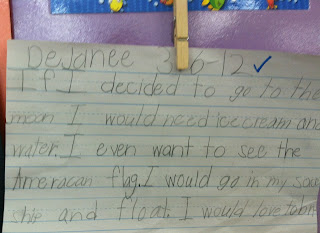 DeJanee 3-6-12
If I decided to go to the
moon I would need icecream and
water. I even want to see the
Ameracan flag. I would go in my
ship and float. I would love